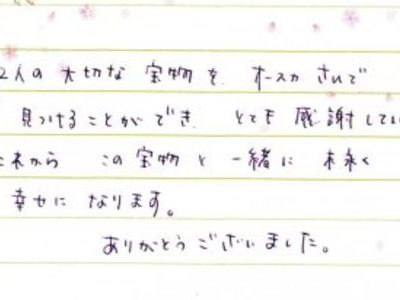 2人の大切な宝物を、オースカさんで
見つけることができ、とても感謝してい
これから この宝物と一緒に末永く
幸せになります。
ありがとうございました。